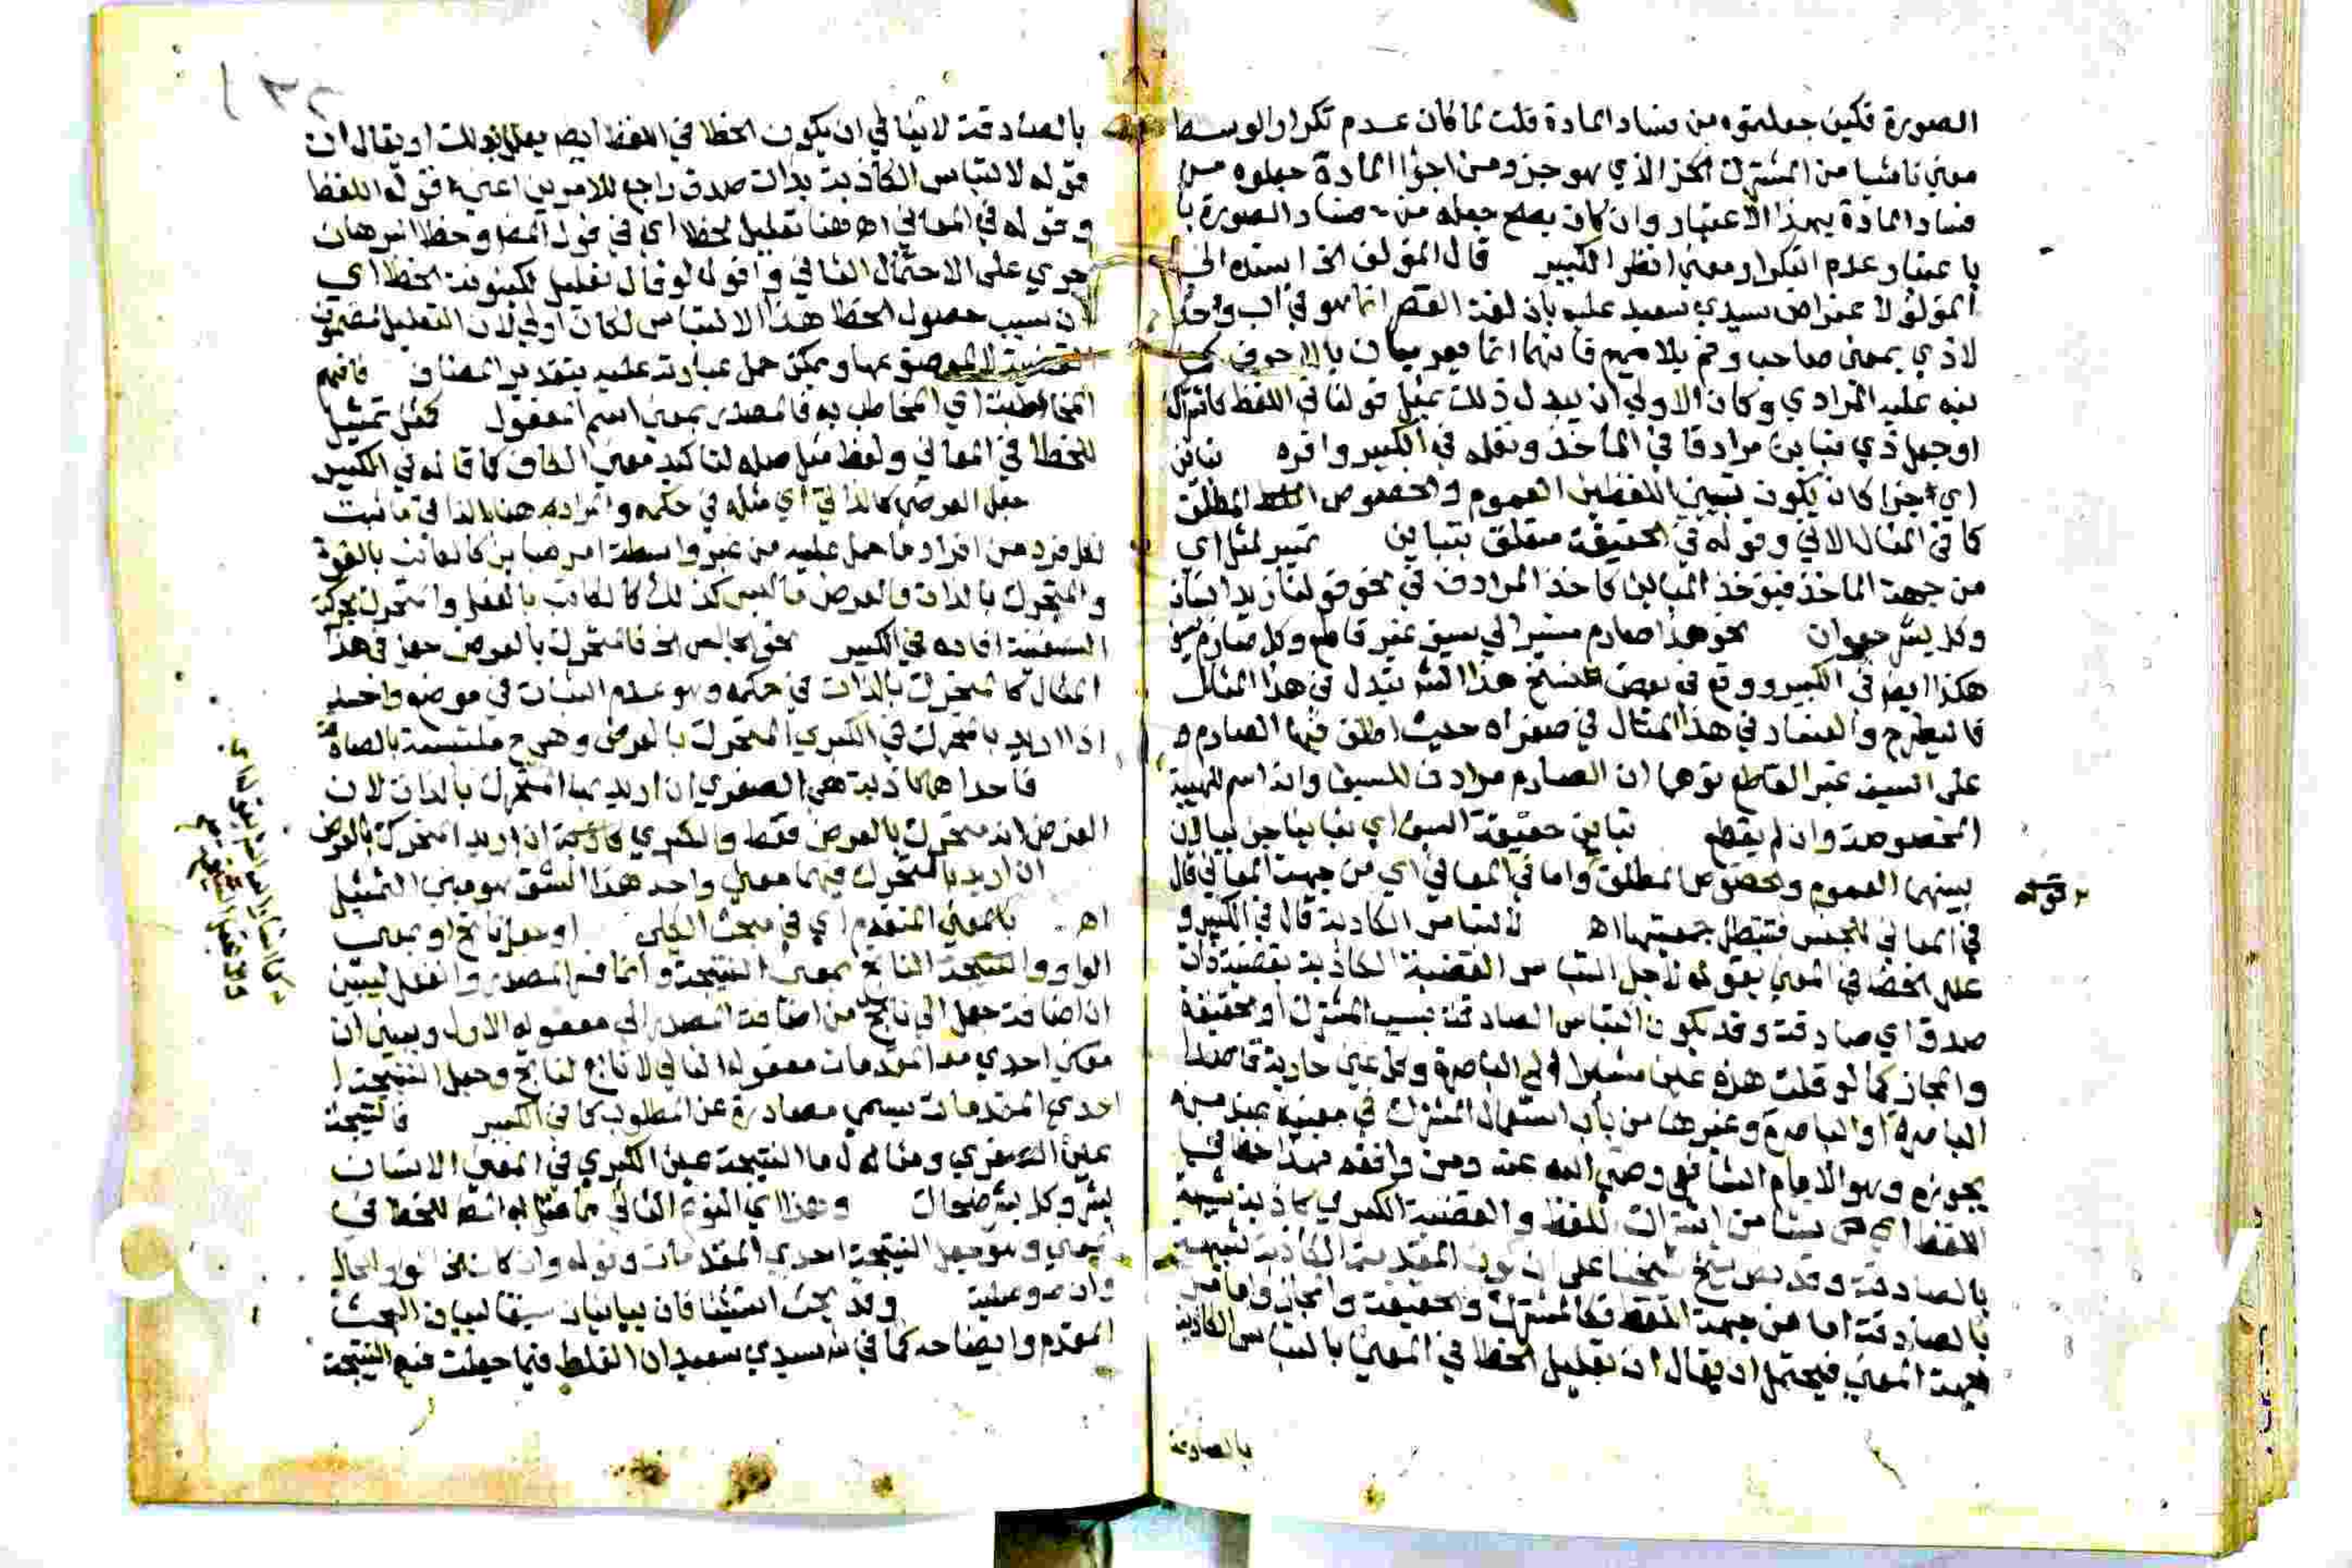 الصورة فكيف جعلتموه من فساد المادة قلت لما كان عدم تكرار الوسط
معنى ناشئا من المشترك الخ الذي هو جزء من اجزا المادة جعلوه من
فساد المادة بهذا الاعتبار وان كان يصح جعله من فساد الصورة با
با عتبار عدم التكرار ومعنى انظر الكبير قال المؤلف الخ اسنده الى
المؤلف لاعتراض سيدي سعيد عليه بان لغة القصر انما هو في اب و
لا ذي بمعنى صاحب وفم بلا ميم فانهما انما يعربان بالاحرف كما
نبه عليه المرادي وكان الاولى ان يبدل ذلك بمثل قولنا في اللفظ كاشتراك
اوجعل ذي تباين مرادفا في المأخذ ونقله في الكبير واقره تباين
اي جزا كان يكون بين اللفظين العموم والخصوص المطلق
كما في المثال الاتي وقوله في الحقيقة متعلق بتباين تمييز لمثل اي
من جهة الماخذ فيؤخذ المباين كاخذ المرادف في نحو قولنا زيد انسان
وكل بشر حيوان نحو هذا صارم مشيرا الى سيف غير قاطع وكل صارم سيف
هكذا ايضا في الكبير ووقع في بعض نسخ هذا الشرح بتدل في هذا المثال
فاليطرح والفساد في هذا المثال في صغراه حيث اطلق فيها الصارم
على السيف غير القاطع توهما ان الصارم مرادف للسيف وانه اسم للهيئة
المخصوصة وان لم يقطع تباين حقيقة السيف اي تباينا جزئيا لان
بينهما العموم والخصوص المطلق واما في المعاني اي من جهة المعاني قال
في المعاني للجنس فتبطل جمعيتها اه لالتباس الكاذبة قال في الكبير و
علل الخطا في المعنى بقوله لاجل التباس القضية الكاذبة بقضية ذات
صدق اي صادقة وقد يكون التباس الصادقة بسبب المشترك او الحقيقة
والمجاز كما لو قلت هذه عين مشيرا الى الباصرة وكل عين جارية قاصدا
الباصرة او الباصرة وغيرها من باب استعمال المشترك في معنييه عند من
يجوزه وهو الامام الشافعي رضي الله عنه ومن وافقه فهذا خطا في
اللفظ اي نشا من اشتراك اللفظ والقضية الكبرى كاذبة شبيهة
بالصادقة وقد نص شيخ شيخنا على ان كون المقدمة الكاذبة شبيهة
بالصادقة اما من جهة اللفظ فكالمشترك والحقيقة والمجاز واما من
جهة المعنى فيحتمل ان يقال ان تعليل الخطا في المعنى بالتباس الكاذبة
بالصادقة
قوله
بالصادقة لا ينافي ان يكون الخطا في اللفظ ايضا يعلل بذلك او يقال ان
قوله لالتباس الكاذبة بذات صدق راجع للامرين اعني قوله اللفظ
وقوله في المعاني اه فهنا تعليل لخطا اي في قول المص وخطا البرهان
جرى على الاحتمال الثاني واقول لو قال تعليل لكينونة الخطا اي
لان سبب حصول الخطا هذا الالتباس لكان اولى لان التعليل
ويمكن حمل عبارته عليه بتقدير المضاف فافهم
المخاطبة اي المخاطب به فالمصدر بمعنى اسم المفعول كمثل تمثيل
للخطا في المعاني ولفظ مثل صلة لتاكيد معنى الكاف كما قاله في الكبير
جعل العرضي كالذاتي اي مثله في حكمه والمراد هنا بالذاتي ما ثبت
لكل فرد من افراد ما حمل عليه من غير واسطة امر مباين كالكاتب بالقوة
والمتحرك بالذات والعرض ما ليس كذلك كالكاتب بالفعل والمتحرك بحركة
السفينة افاده في الكبير نحو الجالس الخ فالمتحرك بالعرض جعل في هذا
المثال كالمتحرك بالذات في حكمه وهو عدم الثبات في موضع واحد
اذا اريد بالمتحرك في الكبرى المتحرك بالعرض وهي ح ملتبسة بالصادقة
فاحداهما كاذبة هي الصغرى ان اريد بها المتحرك بالذات لان
الفرض انه متحرك بالعرض فقط والكبرى كاذبة ان اريد المتحرك بالعرض
ان اريد بالمتحرك فيهما معنى واحد هذا الشق هو مبنى التمثيل
اه بالمعنى المتقدم اي في مبحث الكلي او جعل ناتج او بمعنى
الواو والنتيجة الناتج بمعنى النتيجة وانما قدر المصدر والفعل ليبين
ان اضافة جعل الى ناتج من اضافة المصدر الى مفعوله الاول وبين ان
قوله احدى المقدمات مفعوله الثاني لا ناتج وجعل النتيجة
احدى المقدمات يسمى مصادرة عن المطلوب كما في الكبير فالنتيجة
عين الصغرى ومثال ما النتيجة عين الكبرى في المعنى الانسان
بشر وكل بشر ضحاك وهذا اي النوع الثاني مما مثل به الش للخطا في
المعنى وهو جعل النتيجة احدى المقدمات وقوله وان كان
وان وعليه وقد يحث استئنافان بيانيان سيقا لبيان البحث
المقدم وايضاحه كما في ش سيدي سعيد ان الغلط فيما جعلت فيه النتيجة